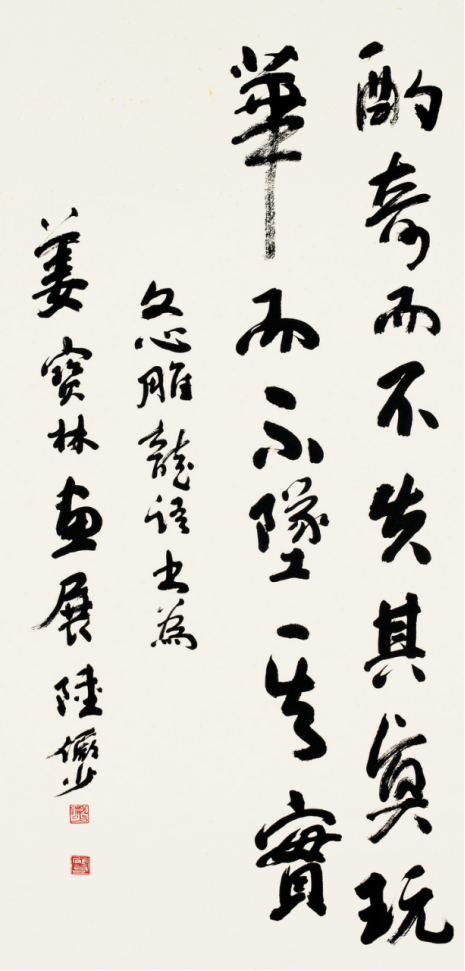 酌奇而不失其真玩
華而不墜其實
文心雕龍語書為
姜寶林畫展陸儼少